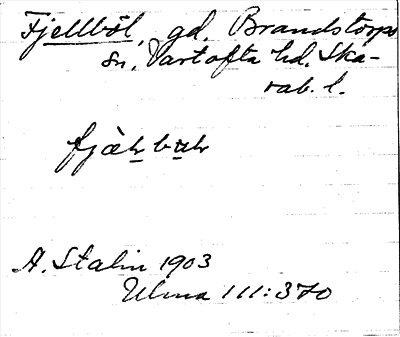 Fjellböl, gd. Brandstorps
sn, Vartofta hd. Ska-
rab. l.
A. Stalin 1903
Ulma 111:370